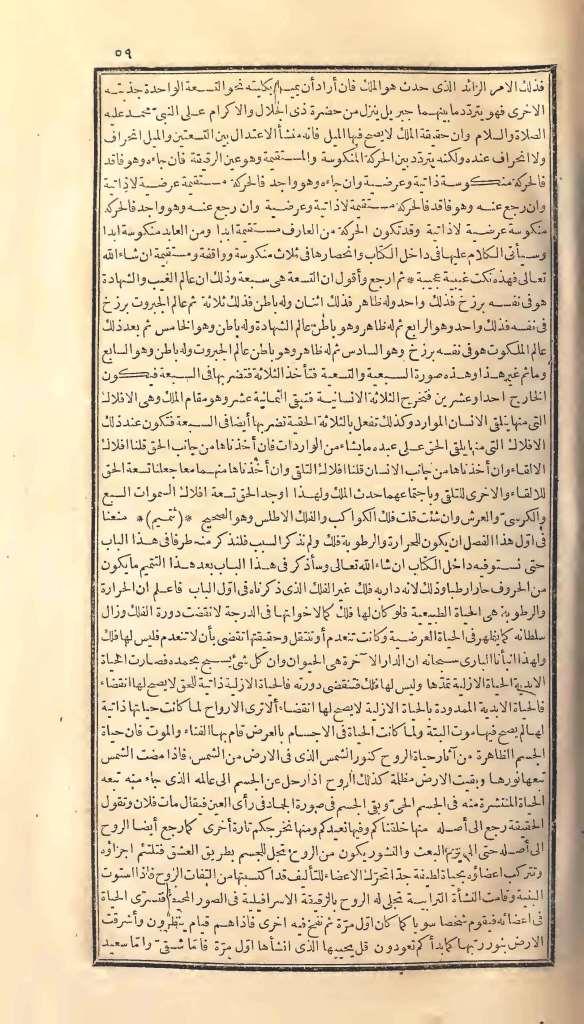 ٥٩
فذلك الامر الزائد الذى حدث هو الملك فان أراد أن بكليته نحو التسعة الواحدة جذبته
الاخرى فهو يتردد ما بينهما جبريل ينزل من حضرة ذى الجلال والاكرام على النبى محمد عليه
الصلاة والسلام وان حقيقة الملك لا يصح فيها الميل فانه منشأ الاعتدال بين التسعتين والميل انحراف
ولا انحراف عنده ولكنه يتردد بين الحركة المنكوسة والمستقيمة وهو عين الرقيقة فان جاءه وهو فاقد
فالحركة منكوسة ذاتية وعرضية وان جاءه وهو واجد فالحركة مستقيمة عرضية لا ذاتية
وان رجع عنه وهو فاقد فالحركة مستقيمة لا ذاتية وعرضية وان رجع عنه وهو واجد فالحركة
منكوسة عرضية لا ذاتية وقد تكون الحركة من العارف مستقيمة أبدا ومن العابد منكوسة أبدا
وسيأتى الكلام عليها فى داخل الكتاب وانحصارها فى ثلاث منكوسة وواقفة ومستقيمة ان شاء الله
تعالى فهذه نكت غيبية عجيبة * ثم ارجع وأقول ان التسعة هى سبعة وذلك ان عالم الغيب والشهادة
هو فى نفسه برزخ فذلك واحد وله ظاهر فذلك اثنان وله باطن فذلك ثلاثة ثم عالم الجبروت برزخ
فى نفسه فذلك واحد وهو الرابع ثم له ظاهر وهو باطن عالم الشهادة وله باطن وهو الخامس ثم بعد ذلك
عالم الملكوت هو فى نفسه برزخ وهو السادس ثم له ظاهر وهو باطن عالم الجبروت وله باطن وهو السابع
وما ثم غير هذا وهذه صورة السبعية والتسعية فتأخذ الثلاثة فتضربها فى السبعة فيكون
الخارج احدا وعشرين فتخرج الثلاثة الانسانية فتبقى الثمانية عشر وهو مقام الملك وهى الافلاك
التى منها يتلقى الانسان الموارد وكذلك تفعل بالثلاثة الحقية تضربها أيضا فى السبعة فتكون عند ذلك
الافلاك التى منها يلقى الحق على عبده ما يشاء من الواردات فان أخذناها من جانب الحق قلنا افلاك
الالقاء وان أخذناها من جانب الانسان قلنا افلاك التلقى وان أخذناها منهما معا جعلنا تسعة الحق
للالقاء والاخرى للتلقى وباجتماعهما حدث الملك ولهذا أوجد الحق تسعة افلاك السموات السبع
والكرسى والعرش وان شئت قلت فلك الكواكب والفلك الاطلس وهو الصحيح *(تتميم)* منعنا
فى اول هذا الفصل ان يكون للحرارة والرطوبة فلك ولم نذكر السبب فلنذكر منه طرفا فى هذا الباب
حتى نستوفيه داخل الكتاب ان شاء الله تعالى وسأذكر فى هذا الباب بعد هذا التتميم ما يكون
من الحروف حارا رطبا وذلك لانه دار به فلك غير الفلك الذى ذكرناه فى اول الباب فاعلم ان الحرارة
والرطوبة هى الحياة الطبيعية فلو كان لها فلك كما لاخواتها فى الدرجة لانقضت دورة الفلك وزال
سلطانه كما يظهر فى الحياة العرضية وكانت تنعدم أو تنتقل وحقيقتها تقضى بأن لا تنعدم فليس لها فلك
ولهذا انبأنا البارى سبحانه ان الدار الآخرة هى الحيوان وان كل شئ يسبح بحمده فصارت الحياة
الابدية الحياة الازلية تمدّها وليس لها فلك فتنقضى دورته فالحياة الازلية ذاتية للحق لا يصح لها انقضاء
فالحياة الابدية الممدودة بالحياة الازلية لا يصح لها انقضاء ألا ترى الارواح لما كانت حياتها ذاتية
لها لم يصح فيها موت البتة ولما كانت الحياة فى الاجسام بالعرض قام بها الفناء والموت فان حياة
الجسم الظاهرة من آثار حياة الروح كنور الشمس الذى فى الارض من الشمس فاذا مضت الشمس
تبعها نورها وبقيت الارض مظلمة كذلك الروح اذا رحل عن الجسم الى عالمه الذى جاء منه تبعه
الحياة المنتشرة منه فى الجسم الحى وبقى الجسم فى صورة الجماد فى رأى العين فيقال مات فلان وتقول
الحقيقة رجع الى أصله منها خلقناكم وفيها نعيدكم ومنها نخرجكم تارة أخرى كما رجع أيضا الروح
الى أصله حتى الى يوم البعث والنشور يكون من الروح تجل للجسم بطريق العشق فتلتئم اجزاؤه
وتتركب اعضاؤه بحياة لطيفة جدا تحرك الاعضاء للتأليف قد اكتسبتها من التفات الروح فاذا استوت
البنية وقامت النشأة الترابية تجلى له الروح بالرقيقة الاسرافيلية فى الصور المحيط فتسرى الحياة
فى اعضائه فيقوم شخصا سويا كما كان أول مرة ثم نفخ فيه اخرى فاذا هم قيام ينظرون وأشرقت
الارض بنور ربها كما بدأكم تعودون قل يحييها الذى انشأها اول مرة فاما شقى واما سعيد